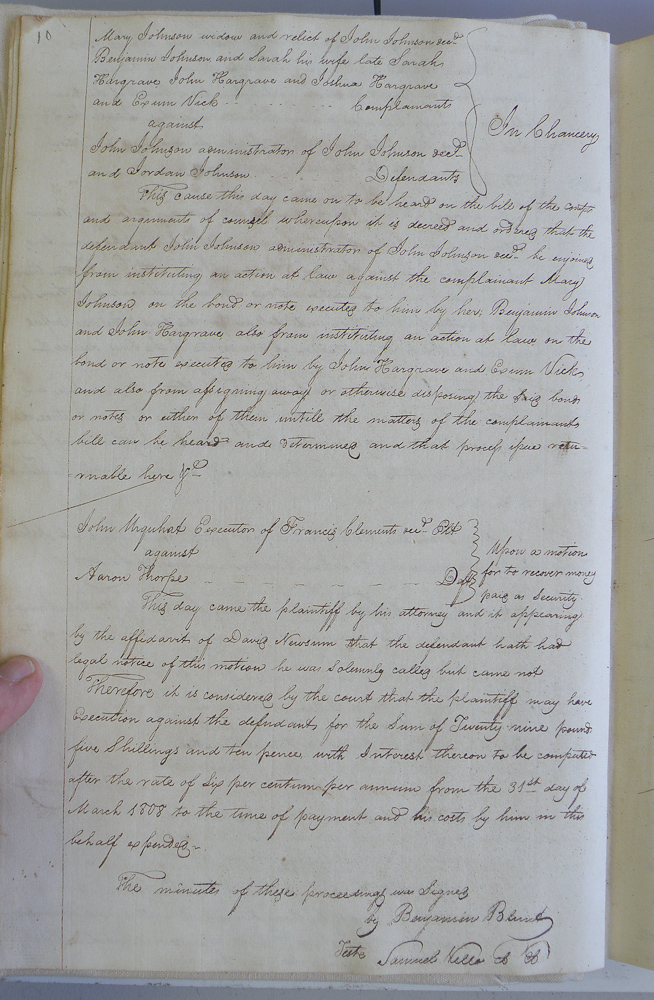 10
Mary Johnson widow and relict of John Johnson decd
Benjamin Johnson and Sarah his wife late Sarah
Hargrave John Hargrave and Joshua Hargrave
and Exum Vick Complainants
against
In Chancery
John Johnson administrator of John Johnson decd
and Jordan Johnson Defendants
This cause this day came on to be heard on the bill of the compts
and arguments of counsel whereupon it is decreed and ordered that the
defendant John Johnson administrator of John Johnson decd be enjoined
from instituting an action at law against the complainant Mary
Johnson on the bond or note executed to him by her, Benjamin Johnson
and John Hargrave also from instituting an action at law on the
bond or note executed to him by John Hargrave and Exum Vick
and also from assigning away or otherwise disposing the said bond
or notes or either of them untill the matters of the complainants
bill can be heard and determined and that process issue retu-
-rnable here &c
John Urquhat Executor of Francis Clements decd Plt
against
Aaron Thorpe Deft
Upon a motion
for to recover money
paid as Security
This day came the plaintiff by his attorney and it appearing
by the affidavit of David Newsum that the defendant hath had
legal notice of this motion he was Solemnly called but came not
Therefore it is considered by the court that the plaintiff may have
Execution against the defendant for the Sum of Twenty nine pounds
five Shillings and ten pence with Interest thereon to be computed
after the rate of Six per centum per annum from the 31st day of
March 1808 to the time of payment and his costs by him in this
behalf expended-
The minutes of these proceedings was Signed
by Benjamin Blunt
Teste Samuel Kello